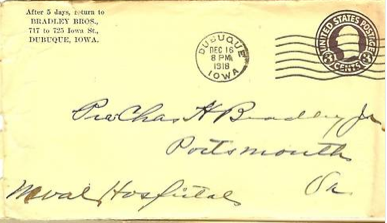 After 5 days, return to
BRADLEY BROS.,
717 to 725 Iowa St.,
DUBUQUE, IOWA.
DUBUQUE
DEC 16
8 PM
1918
IOWA
UNITED STATES POSTAGE
3 CENTS 3
Chas H Bradley Jr
Portsmouth
Naval Hospital Va